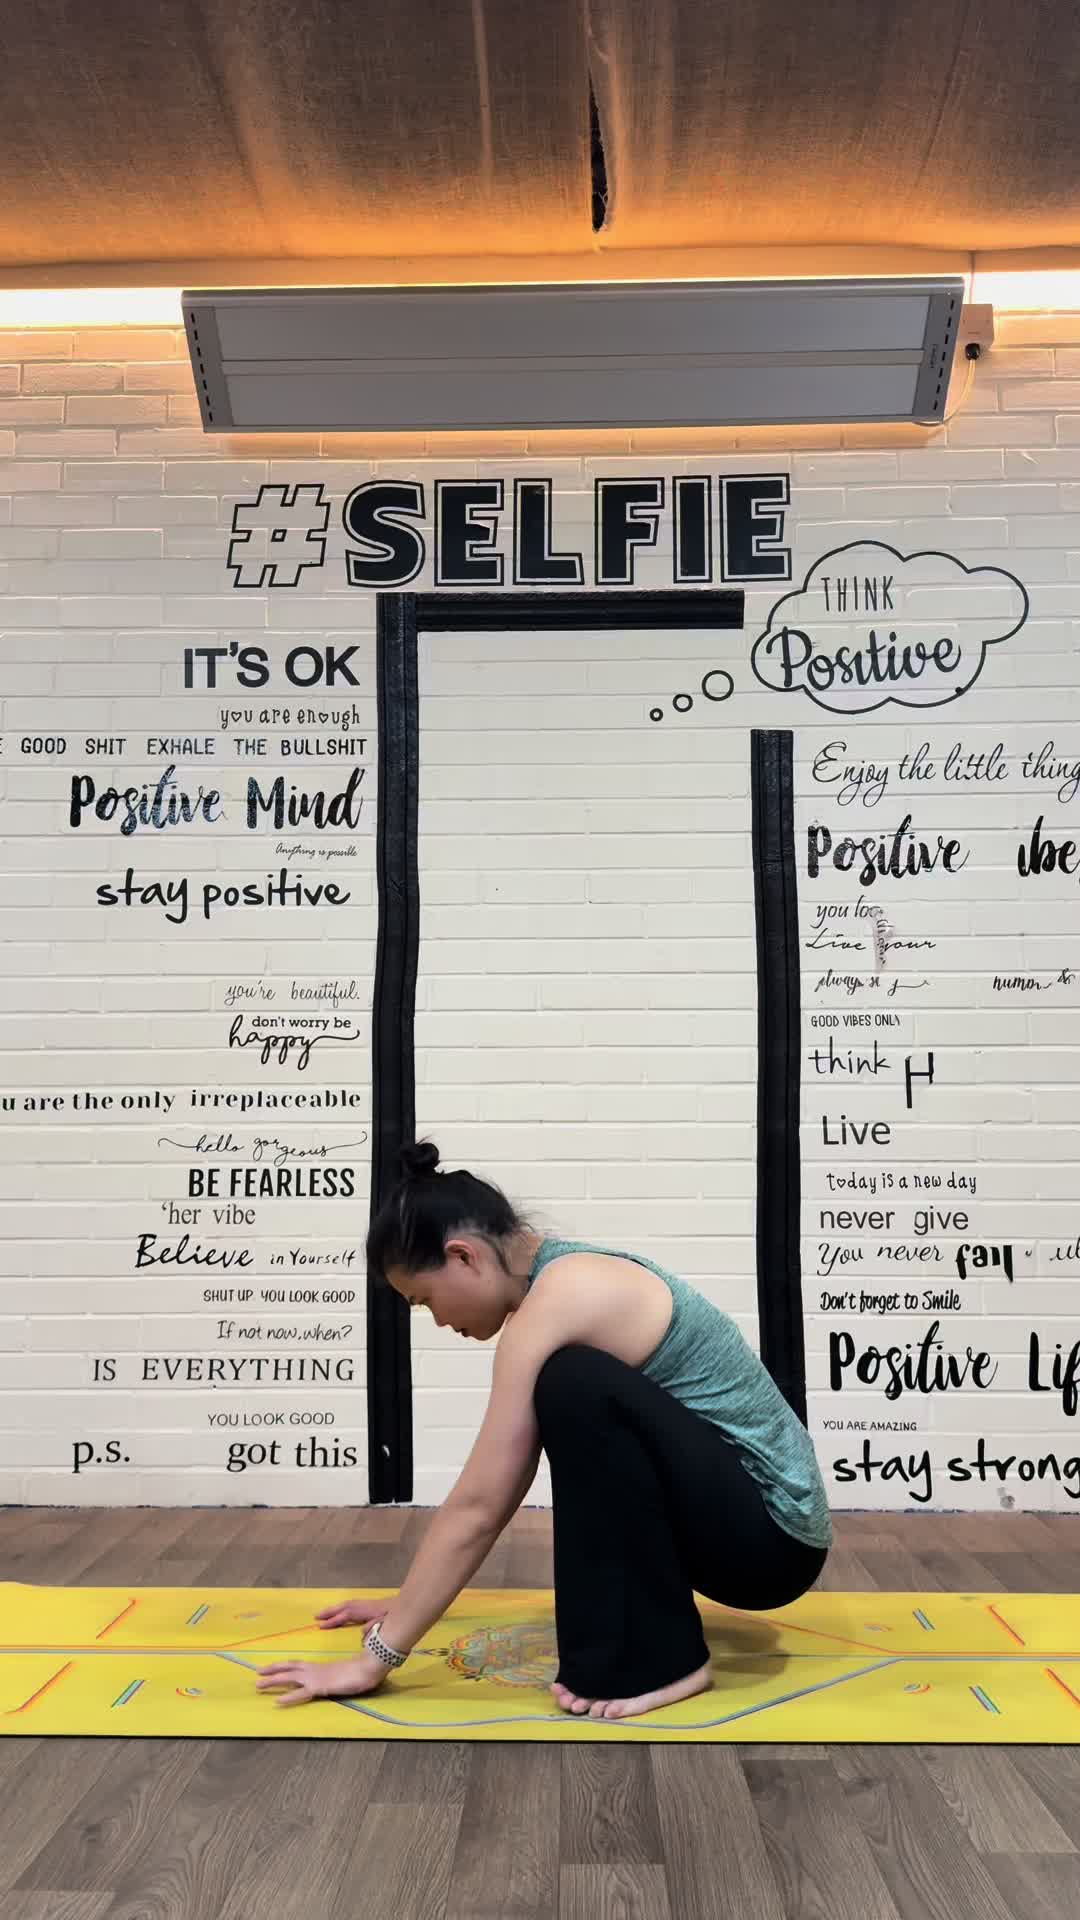 #SELFIE
THINK
Positive
IT'S OK
you are enough
GOOD SHIT EXHALE THE BULLSHIT
Positive Mind
Anything is possible
stay positive
you're beautiful.
don't worry be
happy
u are the only irreplaceable
hello gorgeous
BE FEARLESS
'her vibe
Believe in Yourself
SHUT UP YOU LOOK GOOD
If not now, when?
IS EVERYTHING
YOU LOOK GOOD
p.s. got this
Enjoy the little thing
Positive ibe
you loo
Live your
always
humor &
GOOD VIBES ONLY
think
Live
today is a new day
never give
You never fail
Don't forget to Smile
Positive Lif
YOU ARE AMAZING
stay strong